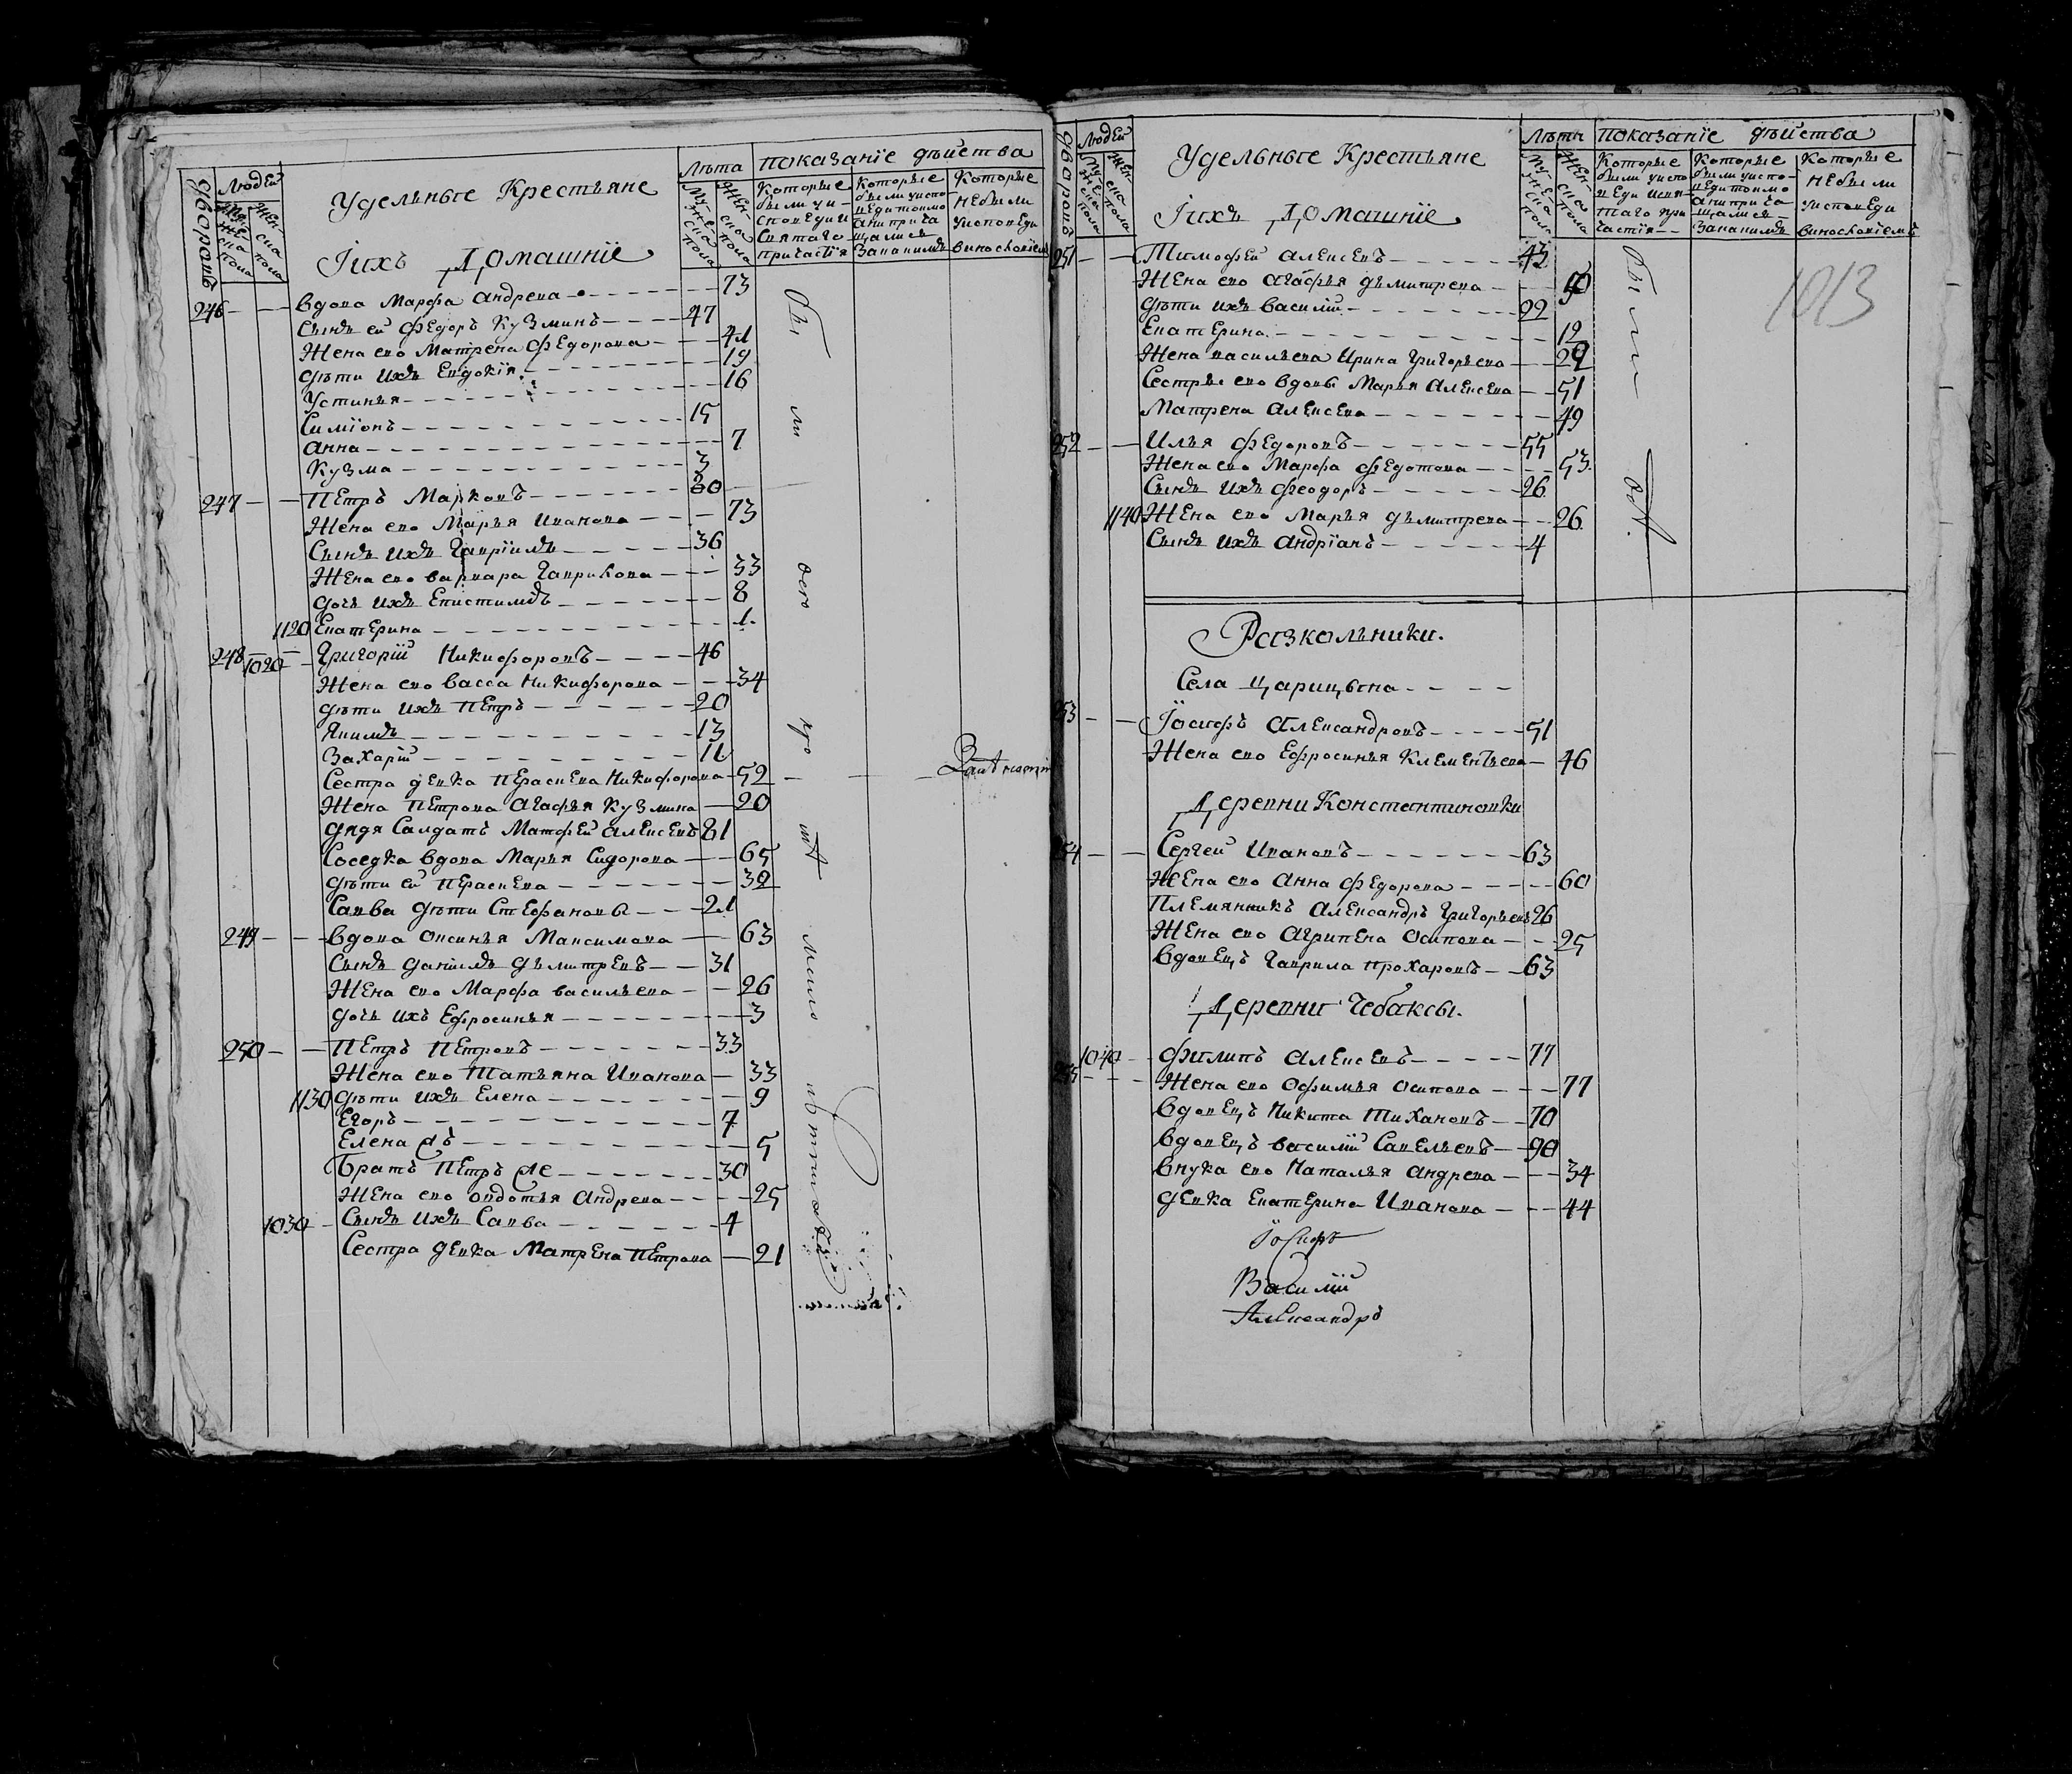 дворовъ
Людей
Мужеска пола
Женска пола
Удельныѣ Крестьяне
Iихъ Домашнїе
Лѣта
Мужеска пола
Женска пола
показанїе дѣйства
Которые были уисповеди и Святаго причастїя
Которые были уисповеди токмо анипричащались Закакимъ
Которые небыли уисповеди
246 вдова Марфа Андрева 73
Сынъ ей Федоръ Кузминъ 47
Жена ево Матрена Федорова 41
дѣти ихъ Евдокїя 19
Устинья 16
Симїонъ 15
Анна 7
Кузма 3
247 Петръ Марковъ
Жена ево Марья Иванова 73
Сынъ ихъ Гаврїилъ 36
Жена ево варвара Гаврилова 33
дочь ихъ Епистимъ 8
1120 Екатерина 1
248 1020 Григорїй Никифоровъ 46
Жена ево васса Никифорова 34
дѣти ихъ Петръ 20
Якимъ 13
Захарїй 11
Сестра девка Пераскева Никифорова 52
Жена Петрова Агафья Кузмина 20
дядя Салдатъ Матфей Алексевъ 81
Соседка вдова Марья Сидорова 65
дѣти ей Пераскева 32
Савва дѣти Стефановы 21
249 вдова Оксинья Максимова 63
Сынъ данїилъ дъмитревъ 31
Жена ево Марфа васильева 26
дочь ихъ Ефросинья 3
250 Петръ Петровъ 33
Жена ево Татьяна Иванова 33
1130 дѣти ихъ Елена 9
Егоръ 7
Елена дъ 5
Братъ Петръ же 30
Жена ево овдотья Андрева 25
1030 Сынъ ихъ Савва 4
Сестра девка Матрена Петрова 21
дворовъ
Людей
Мужеска пола
Женска пола
Удельныѣ Крестьяне
Iихъ Домашнїе
Лѣты
Мужеска пола
Женска пола
показанїе дѣйства
Которые были уисповеди исвятаго причастїя
Которые были уисповеди токмо анипричащались Закакимъ
Которые небыли уисповеди
1013
251 Тимофей Алексевъ 43
Жена ево Агафья дъмитрева
дѣти ихъ василїй 22
Екатерина 12
Жена васильева Ирина Григорьева
Сестры ево вдовы Марья Алексева 51
Матрена Алексева 49
252 Илья Федоровъ 55
Жена ево Марфа Федотова 53
Сынъ ихъ Феодоръ 26
1140 Жена ево Марья дъмитрева 26
Сынъ ихъ Андрїанъ 4
Разкольники.
Села Царицына
253 Їосифъ Александровъ 51
Жена ево Ефросинья Клеменьтьева 46
Деревни Константиновки
254 Сергей Ивановъ 63
Жена ево Анна Федорова 60
Племянникъ Александръ Григорьевъ 26
Жена ево Агрипена Осипова 25
вдовецъ Гаврила Прохаровъ 63
Деревни Чебаксы.
1040 Филипъ Алексевъ 77
255 Жена ево Офимья Осипова 77
вдовецъ Никита Тихановъ 70
вдовецъ василїй Савельевъ 90
внука ево Наталья Андрева 34
девка Екатерина Иванова 44
Їосифъ
Василїй
Александръ